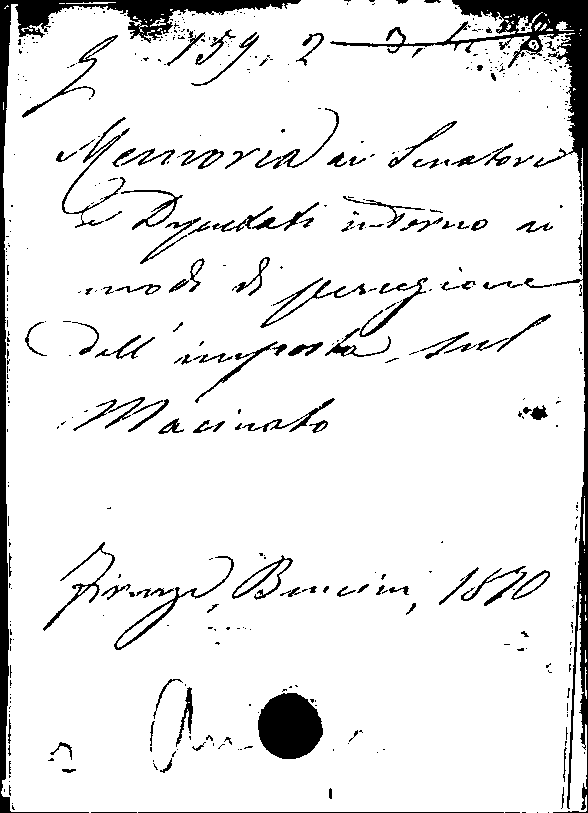 G 159, 2 3, 4
Memoria ai Senatori
e Deputati intorno ai
modi di percezione
dell'imposta sul
Macinato
Firenze, Bencini, 1870